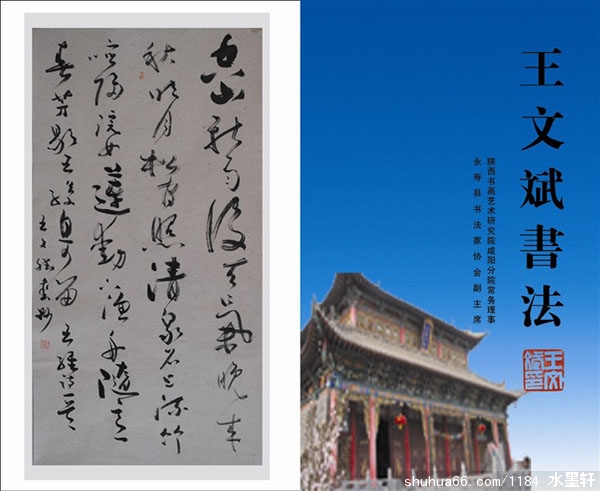 空山新雨後天氣晚來
秋明月松間照清泉石上流竹
喧歸浣女蓮動漁舟隨意
春芳歇王孫自可留 王維詩一首
王文斌書法
陕西书画艺术研究院咸阳分院常务理事
永寿县书法家协会副主席
shuhua66.com/1184 水墨轩